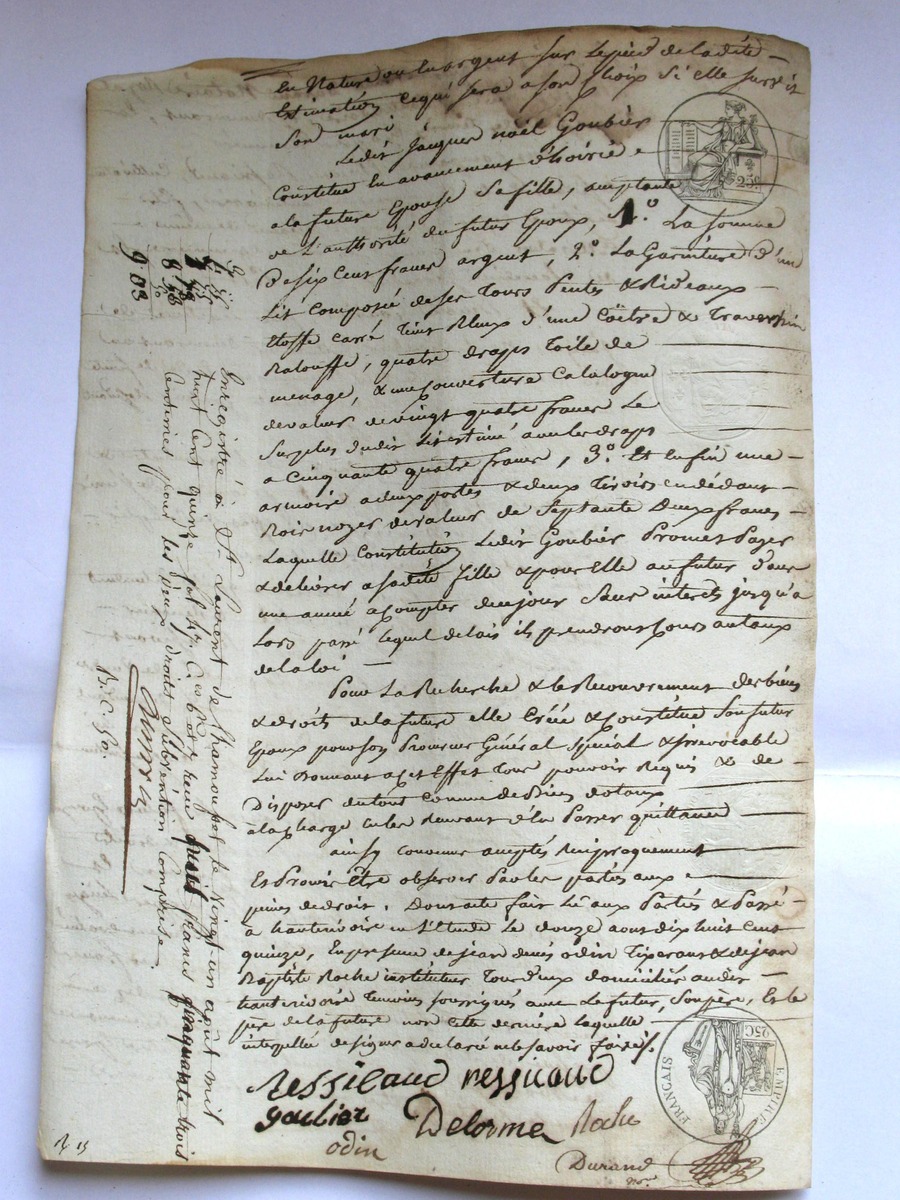 en Nature ou en argent sur le pied de la dite
Estimation ce qui sera a son choix si elle survit
son mari
Ledit Jacques noël Goubier
Constitue En avancement d'hoirie
a la future Epouse Sa fille, acceptante
de L'authorité du futur Epoux, 1.º La somme
De six cent francs argent, 2.º La Garniture d'un
Lit composé de ses Tours Pentes & Rideaux
Etoffe carré teint Bleux d'une Coëtre & Traversin
Balouffe, quatre draps toile de
menage, & une couverture Catalogne
de valeur de vingt quatre francs Le
Surplus dudit Lit estimé avec les draps
a Cinquante quatre francs, 3.º Et enfin une
armoire a deux portes & deux tiroirs en dédant
Bois noyer de valeur de Septante Deux francs
Laquelle Constitution Ledit Goubier Promet Payer
& delivrer a sa dite fille & pour Elle au futur dans
une année a Compter de ce jour Sans interets jusqu'a
Lors passé lequel delais ils prendront cours au taux
de la loi
Pour La Recherche & le Recouvrement des biens
& droits de la future elle Crée & Constitue Son futur
Epoux pour son Procureur Général Special & irrevocable
Lui Donnant a cet Effet tout pouvoir Requis & de
Disposer du tout comme de Biens dotaux
à la charge en les Recevant d'en Passer quittance
ainsy convenu accepté Reciproquement
Et Promis Etre observer Par les parties aux
peines de droit. Dont acte fait Lu aux Parties & Passé
a hauterivoire en L'Etude Le douze aout dix huit cent
quinze, En presence de jean denis odin Tixerant & de jean
Baptiste Roche instituteur Tous deux domiciliés audit
hauterivoire temoins soussignés avec Le futur, Son père, Et le
père de la future non cette derniere laquelle
interpellée de signer a declaré ne le savoir faire
ressicaud ressicaud
goubier Delorme Roche
odin
Durand
nore
25c.
EMPIRE FRANÇAIS
25C
903
Enregistré à St. Laurent de Chamousset le vingt-un août mil
huit cent quinze fol. 47. C. 6 & 7 Reçu huit francs quarante trois
centimes pour les deux droits subvention comprise.